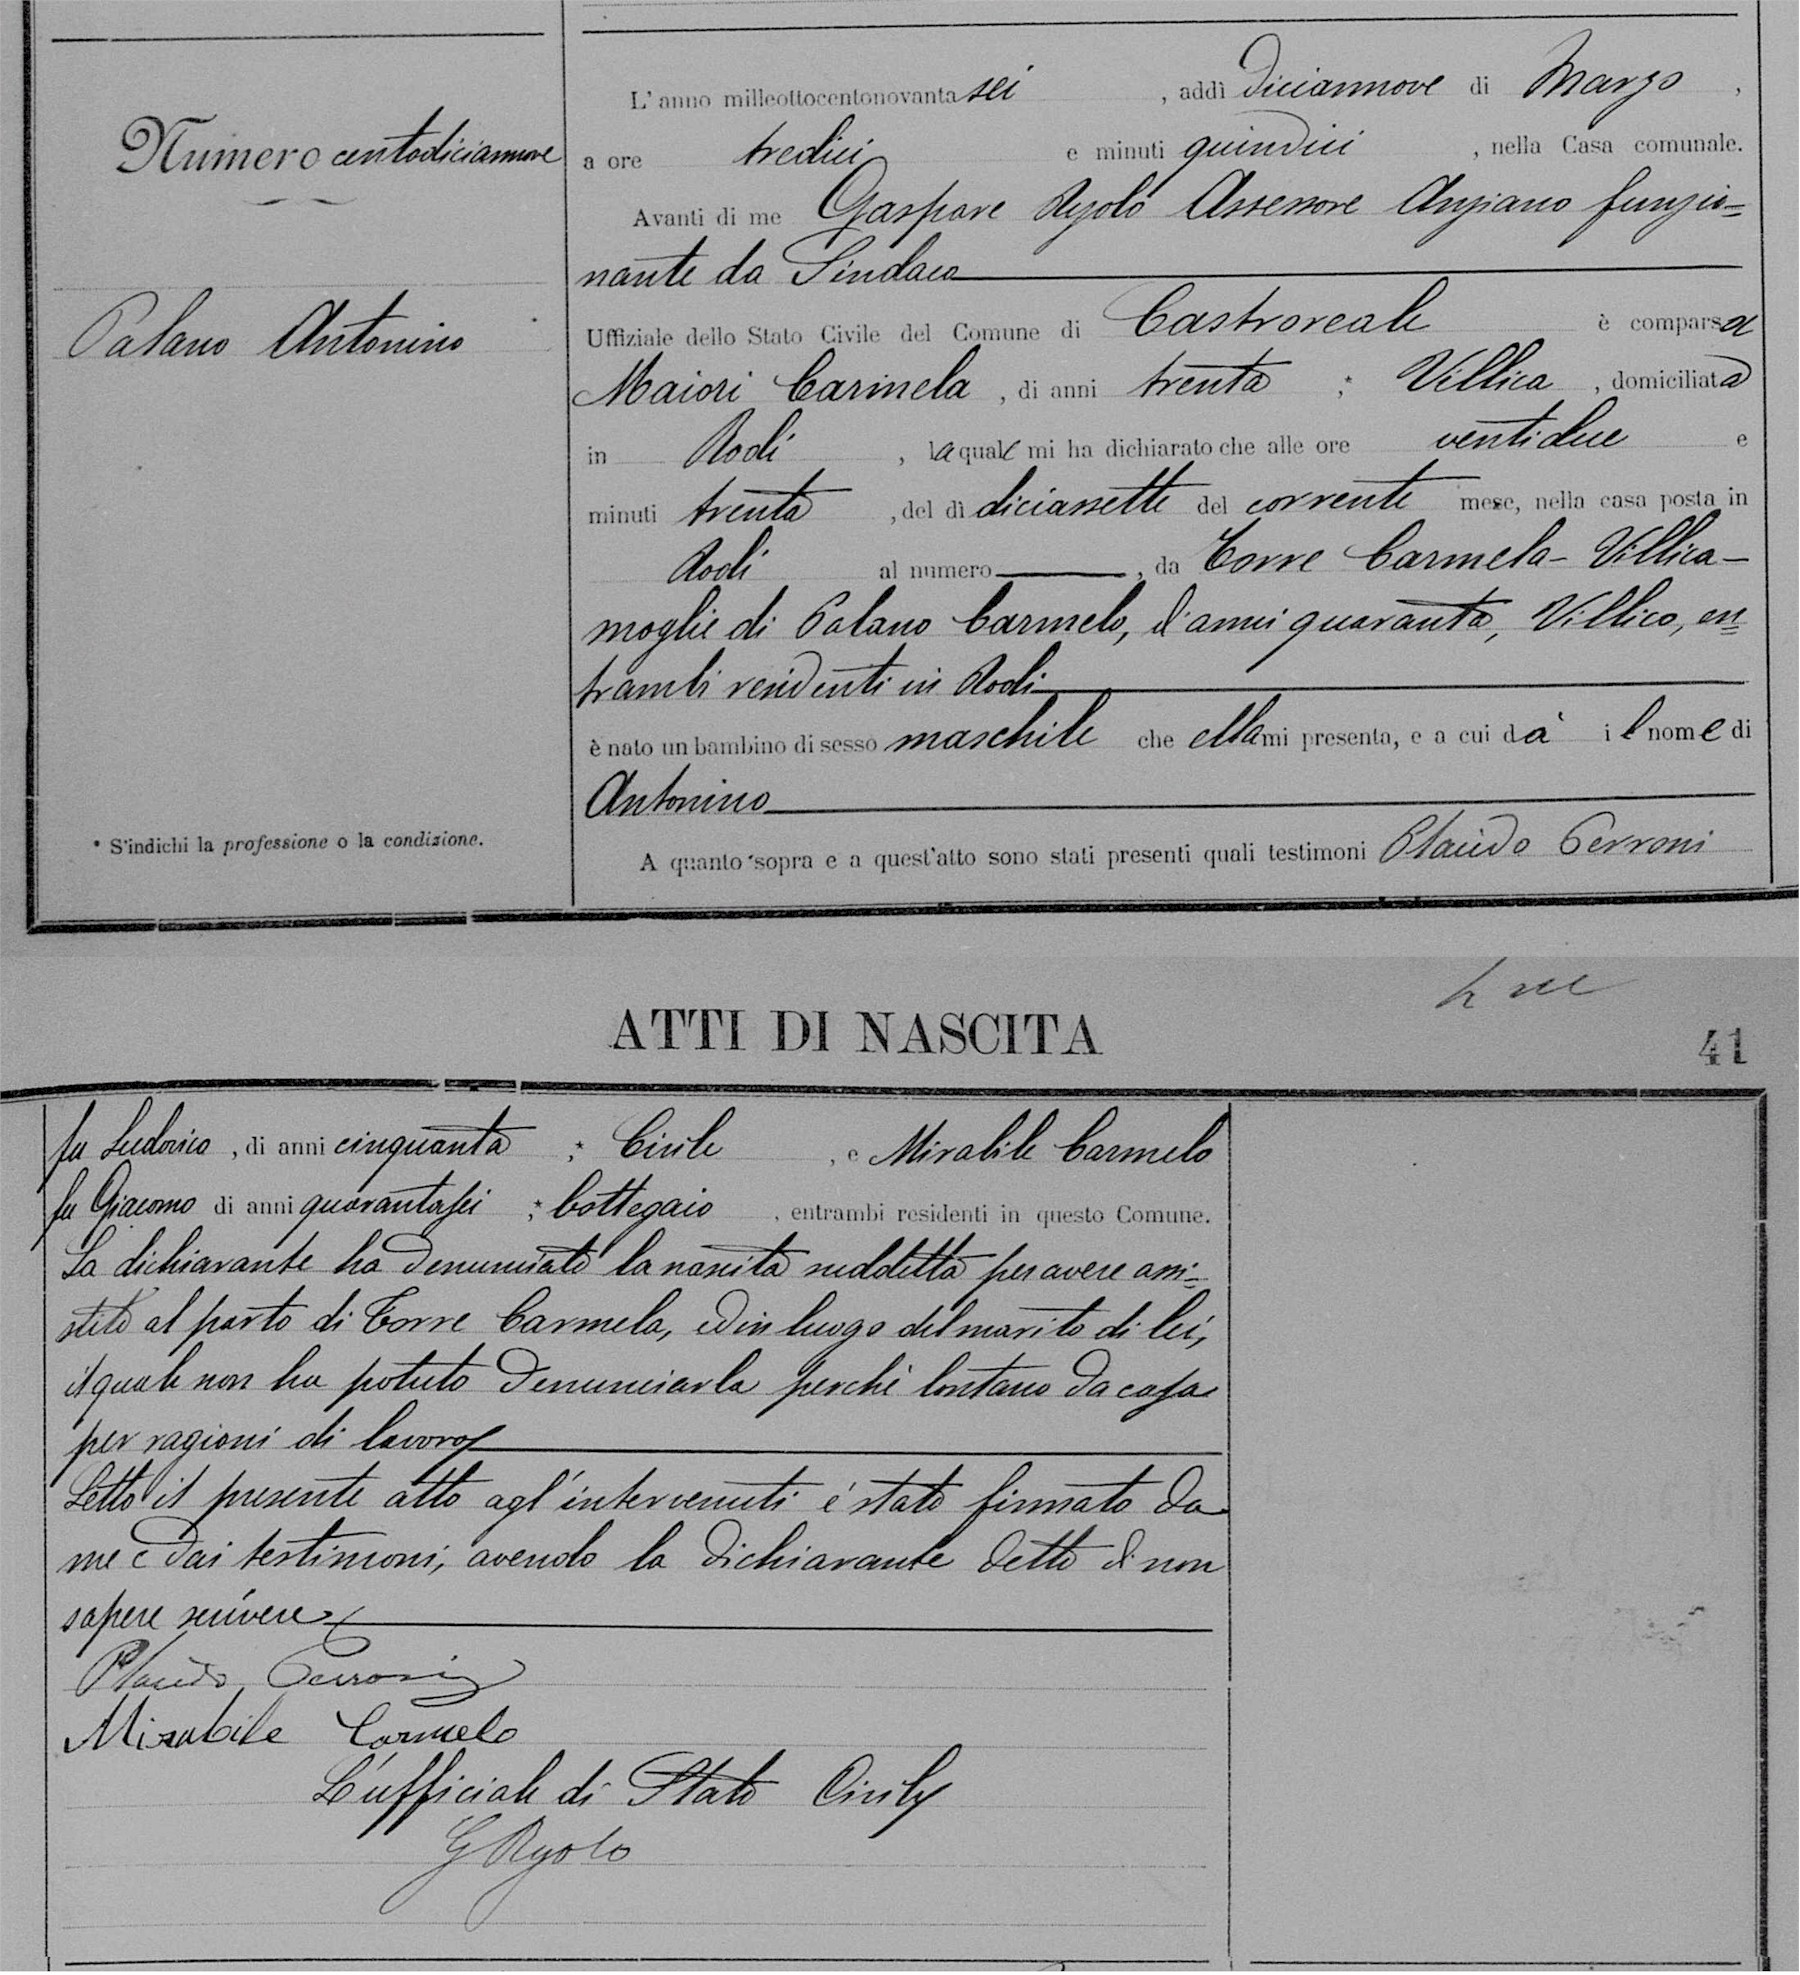 L'anno milleottocentonovantasei, addì diciannove di Marzo,
Numero centodiciannove
a ore tredici e minuti quindici, nella Casa comunale.
Avanti di me Gaspare Ryolo Assessore Anziano funzio=
nante da Sindaco
Palano Antonino
Uffiziale dello Stato Civile del Comune di Castroreale è comparsa
Maiori Carmela, di anni trenta, * Villica, domiciliata
in Rodi, la quale mi ha dichiarato che alle ore ventidue e
minuti trenta, del dì diciassette del corrente mese, nella casa posta in
Rodi al numero, da Torre Carmela - Villica -
moglie di Palano Carmelo, d'anni quaranta, Villico, en=
trambi residenti in Rodi
è nato un bambino di sesso maschile che ella mi presenta, e a cui dà il nome di
Antonino
* S'indichi la professione o la condizione.
A quanto sopra e a quest'atto sono stati presenti quali testimoni Placido Perroni
ATTI DI NASCITA
41
fu Ludovico, di anni cinquanta, * Civile, e Mirabile Carmelo
fu Giacomo di anni quarantasei, * bottegaio, entrambi residenti in questo Comune.
La dichiarante ha denunciato la nascita suddetta per avere assi=
stito al parto di Torre Carmela, ed in luogo del marito di lei,
il quale non ha potuto denunciarla perchè lontano da casa
per ragioni di lavoro
Letto il presente atto agl'intervenuti è stato firmato da
me e dai testimoni, avendo la dichiarante detto di non
sapere scrivere
Placido Perroni
Mirabile Carmelo
L'ufficiale di Stato Civile
G Ryolo